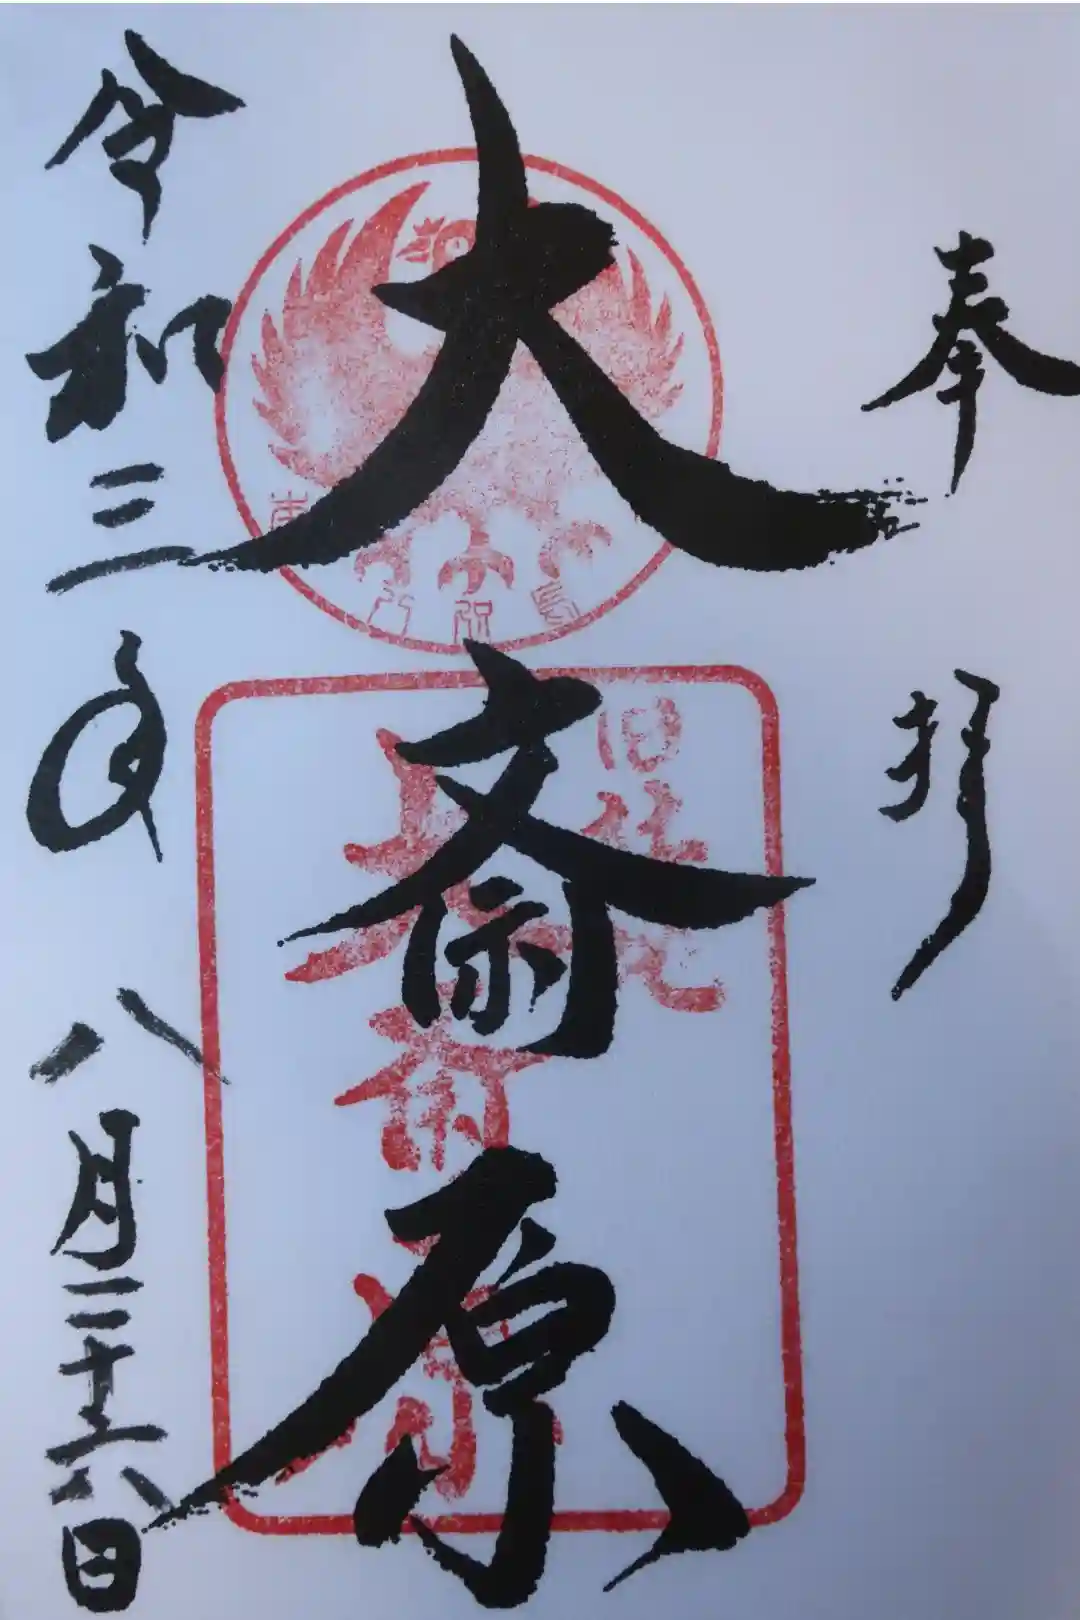 奉拝
大斎原
旧社地
大斎原
令和三年八月二十六日